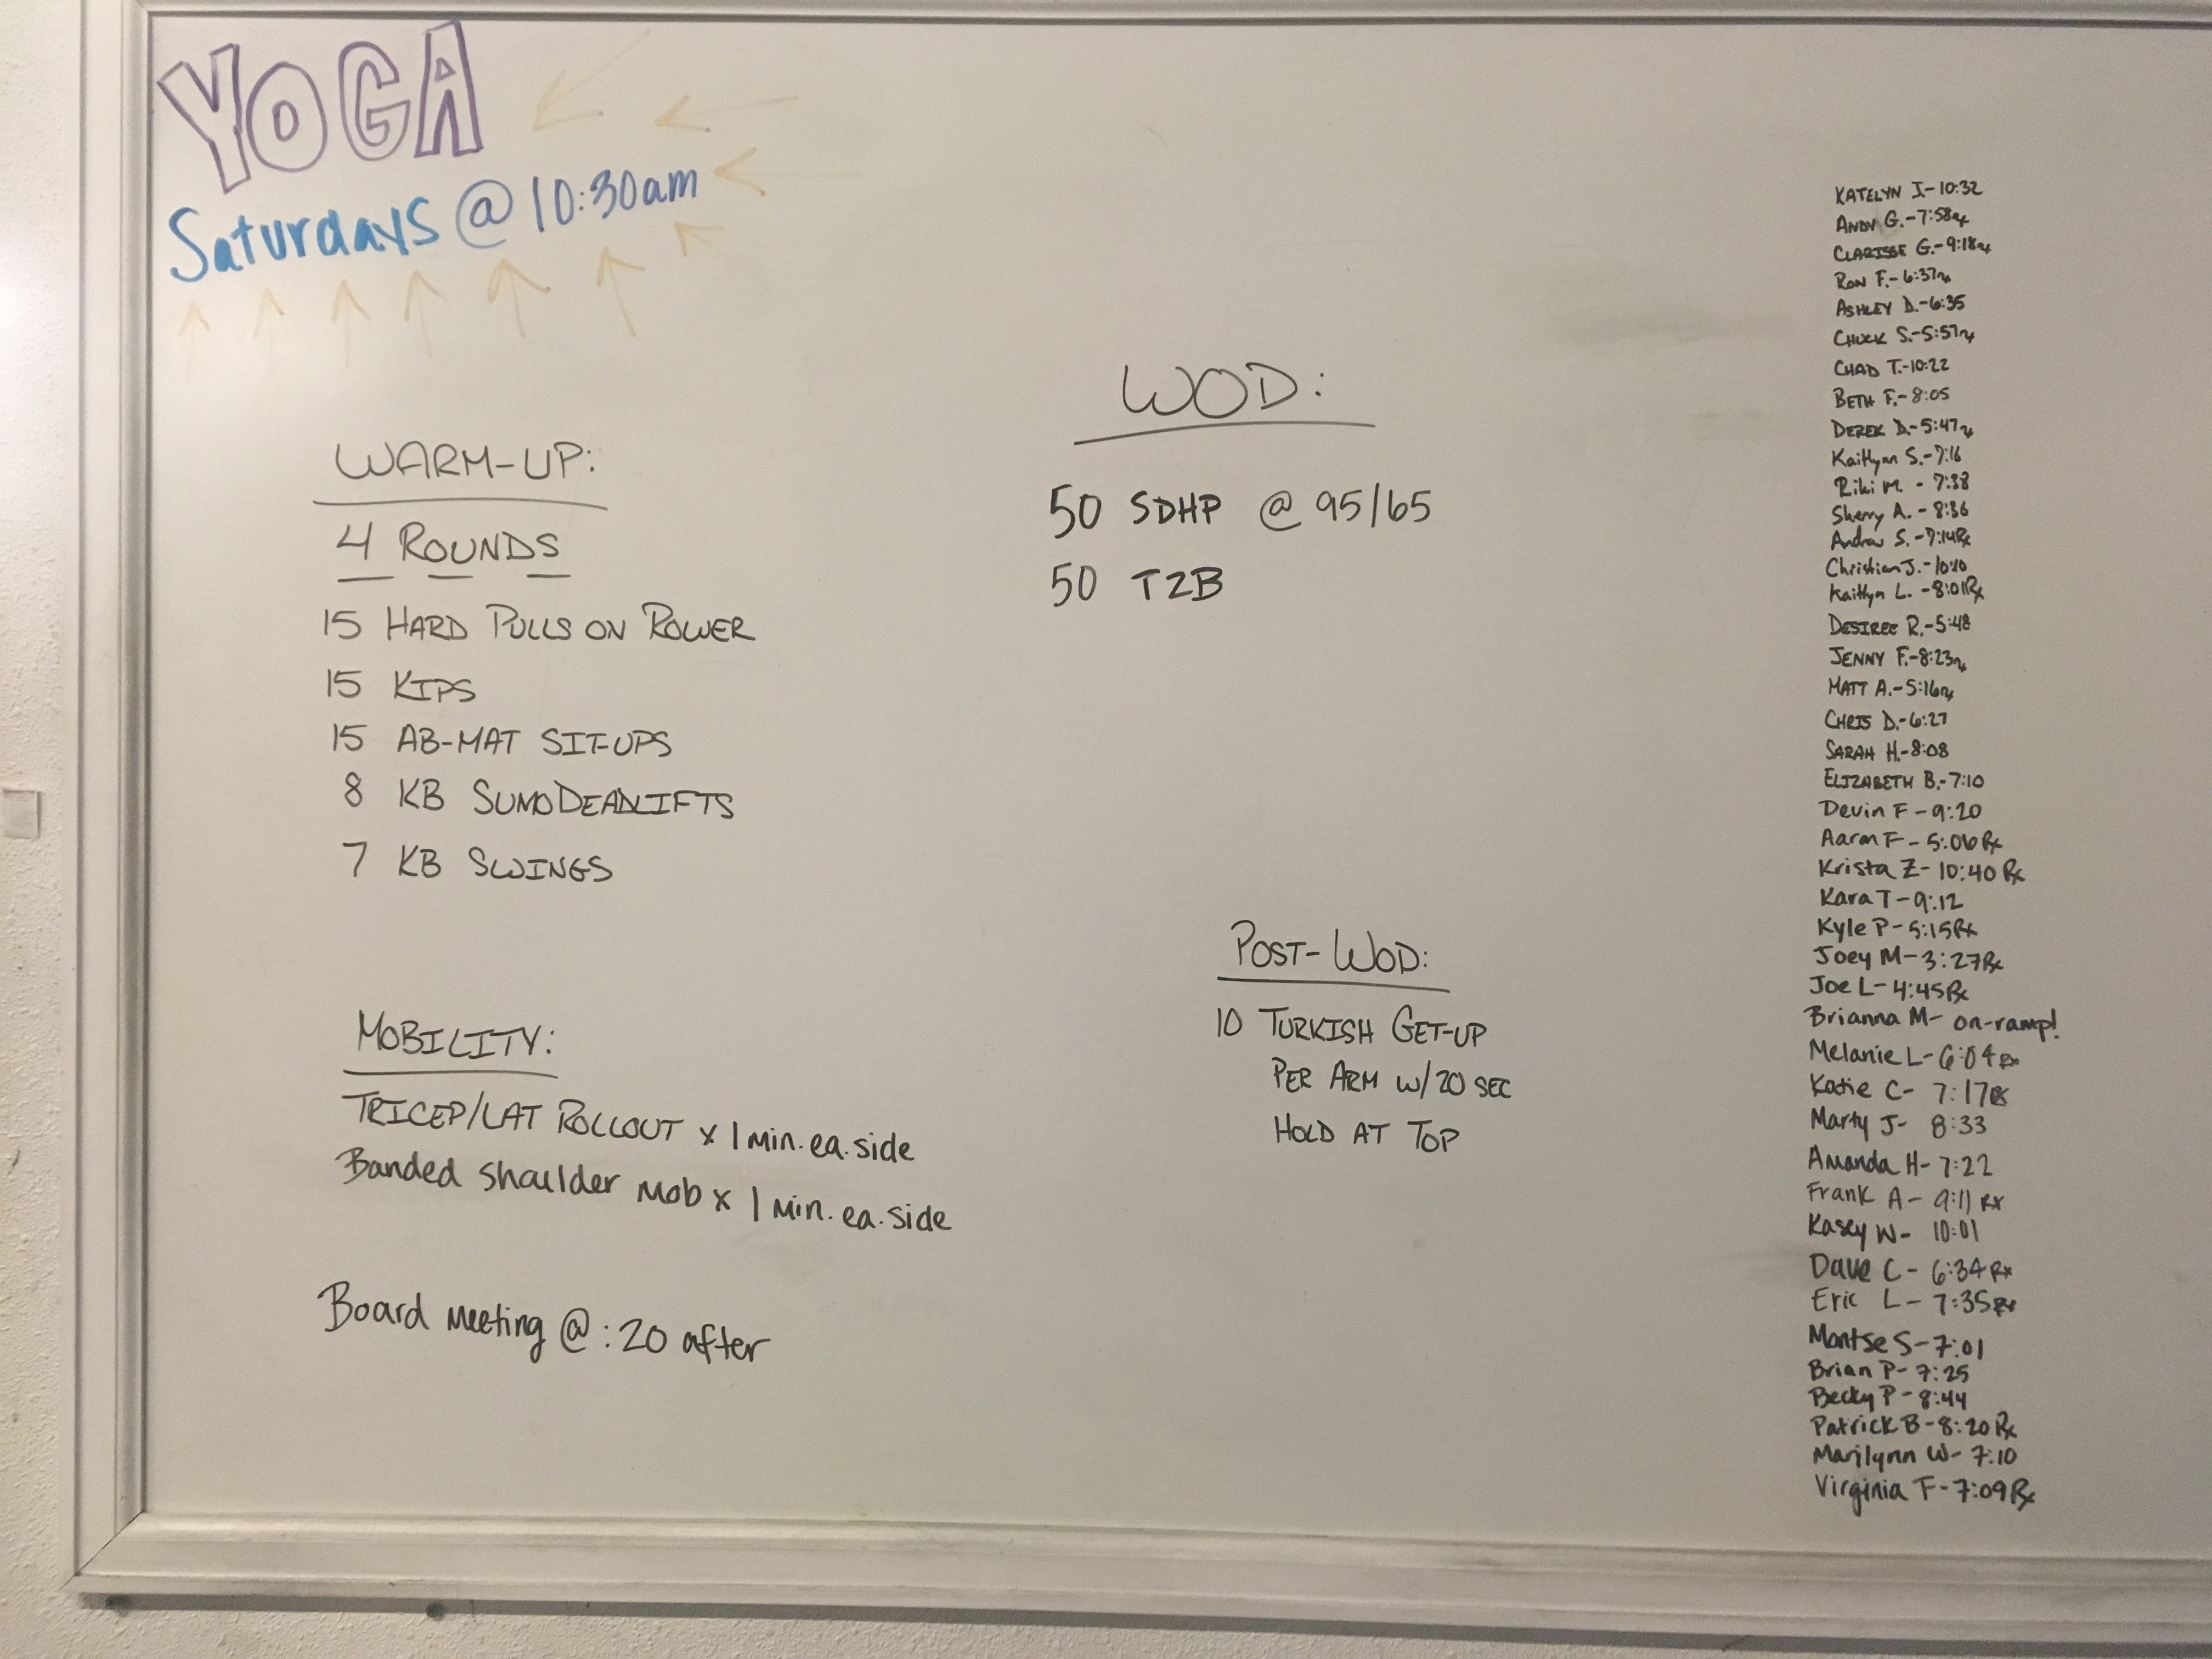 YOGA
Saturdays @ 10:30am
WARM-UP:
4 ROUNDS
15 HARD PULLS ON ROWER
15 KIPS
15 AB-MAT SIT-UPS
8 KB SUMO DEADLIFTS
7 KB SWINGS
MOBILITY:
TRICEP/LAT ROLLOUT x 1 min. ea. side
Banded shoulder mob x 1 min. ea. side
Board meeting @ :20 after
WOD:
50 SDHP @ 95/65
50 T2B
POST-WOD:
10 TURKISH GET-UP
PER ARM W/20 SEC
HOLD AT TOP
KATELYN I-10:32
ANDY G.-7:58rx
CLARISSE G.-9:18rx
RON F.-6:37rx
ASHLEY D.-6:35
CHUCK S.-5:57rx
CHAD T.-10:22
BETH F.-8:05
DEREK D.-5:47rx
Kaitlynn S.-7:16
Riki M. - 7:38
Sherry A. - 8:36
Andrew S. -7:14Rx
Christian J.-10:10
Kaitlyn L. -8:01Rx
DESIREE R.-5:48
JENNY F.-8:23rx
MATT A.-5:16rx
CHRIS D.-6:27
SARAH H.-8:08
ELIZABETH B.-7:10
Devin F - 9:20
Aaron F - 5:06 Rx
Krista Z- 10:40 Rx
Kara T - 9:12
Kyle P - 5:15Rx
Joey M- 3:27Rx
Joe L- 4:45Rx
Brianna M- on-ramp!
Melanie L- 6:04 Rx
Katie C- 7:17 Rx
Marty J- 8:33
Amanda H- 7:22
Frank A - 9:11 RX
Kasey W- 10:01
Dave C - 6:34 Rx
Eric L - 7:35 Rx
Montse S-7:01
Brian P- 7:25
Becky P - 8:44
Patrick B - 8:20 Rx
Marilynn W- 7:10
Virginia F- 7:09 Rx